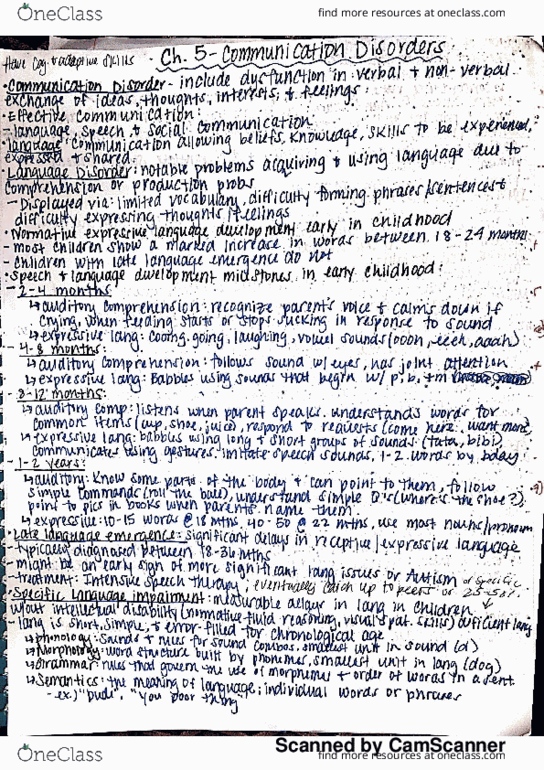 OneClass
find more resources at oneclass.com
Have cog. + adaptive skills
Ch. 5 - Communication Disorders
· Communication Disorder - include dysfunction in verbal + non-verbal
exchange of ideas, thoughts, interests, + feelings
· Effective communication:
- language, speech + social communication
· language: communication allowing beliefs, knowledge, skills to be experienced,
expressed + shared
· Language Disorder: notable problems acquiring + using language due to
comprehension or production probs
- Displayed via: limited vocabulary, difficulty forming phrases/sentences +
difficulty expressing thoughts/feelings
· Normative expressive language development early in childhood
- most children show a marked increase in words between 18-24 months
- children with late language emergence do not
· Speech + language development milestones in early childhood:
- 2-4 months
↳ auditory comprehension: recognize parent's voice + calms down if
crying, when feeding starts or stops sucking in response to sound
↳ expressive lang: cooing, going, laughing, vowel sounds (oooh, eeeh, aaah)
- 4-8 months:
↳ auditory comprehension: follows sound w/ eyes, has joint attention
↳ expressive lang: Babbles using sounds that begin w/ p, b, + m
- 8-12 months:
↳ auditory comp: listens when parent speaks, understands words for
common items (cup, shoe, juice), respond to requests (come here, want more)
↳ expressive lang: babbles using long + short groups of sounds (tata, bibi),
communicates using gestures, imitate speech sounds, 1-2 words by bday
- 1-2 years:
↳ auditory: Know some parts of the body + can point to them, follow
simple commands (roll the ball), understand simple Q's (where's the shoe?),
point to pics in books when parents name them
↳ expressive: 10-15 words @ 18 mths, 40-50 @ 22 mths, use most nouns/pronoun
· Late language emergence: significant delays in receptive/expressive language
- typically diagnosed between 18-36 mths
- might be an early sign of more significant lang issues or Autism or specific
- treatment: Intensive speech therapy, eventually catch up to peers
· Specific Language Impairment: measurable delays in lang in children
w/out intellectual disability (normative fluid reasoning, visual spat. skills) deficient lang
- lang is short, simple, + error-filled for chronological age
↳ phonology: sounds + rules for sound combos, smallest unit in sound (d)
↳ Morphology: word structure built by phonemes, smallest unit in lang (dog)
↳ Grammar: rules that govern the use of morphemes + order of words in a sent.
↳ Semantics: the meaning of language; individual words or phrases
- ex) "Dude", "you poor thing"
Scanned by CamScanner
OneClass
find more resources at oneclass.com